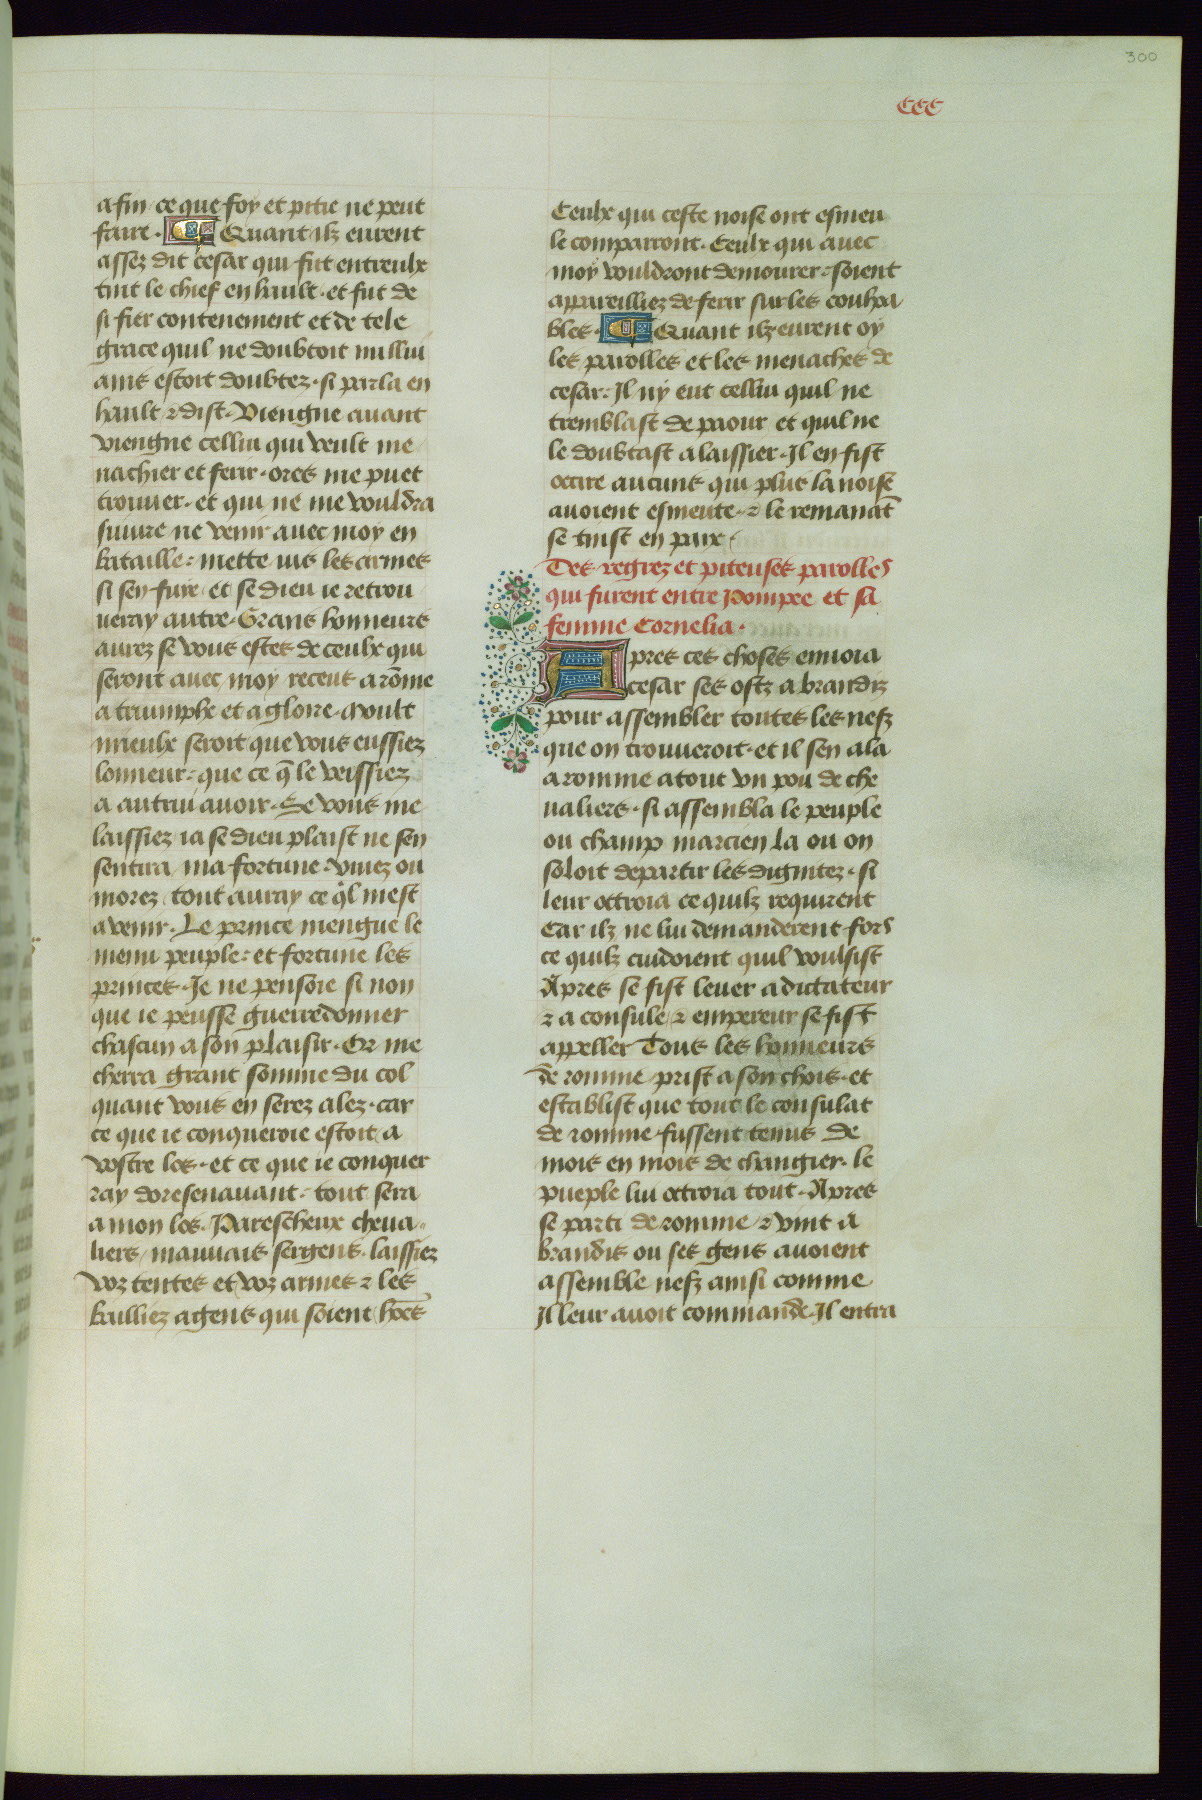 300
CCC
afin ce que foy et pitie ne peut
faire. Quant ilz eurent
assez dit cesar qui fut entreulx
tint le chief en hault. et fut de
si fier contenement et de tele
grace quil ne doubtoit nullui
ains estoit doubtez. si parla en
hault ⁊ dist. Viengne auant
viengne cellui qui veult me
nachier et ferir. ores me puet
trouuer. et qui ne me vouldra
suiure ne venir auec moy en
bataille: mette ius les armes
si sen fuye et se dieu ie retrou
ueray autre. Grans honneurs
aurez se vous estes de ceulx qui
seront auec moy receus a rõme
a triumphe et a gloire. Moult
mieulx seroit que vous eussiez
lonneur: que ce q̃ le veissiez
a autrui auoir. Se vous me
laissiez ia se dieu plaist ne sen
sentira ma fortune. viuez ou
morez tout auray ce q̃l mest
a venir. Le prince mengue le
menu peuple: et fortune les
princes. Je ne pensoie si non
que ie peusse guerredonner
chascun a son plaisir. Or me
cherra grant somme du col
quant vous en serez alez. car
ce que ie conqueroie estoit a
vostre los. et ce que ie conquer
ray doresenauant. tout sera
a mon los. Parescheux cheua
liers mauuais sergens. laissiez
voz tentes et voz armes ⁊ les
bailliez a gens qui soient hões
Ceulx qui ceste noise ont esmeu
le comparront. Ceulx qui auec
moy vouldront demourer: soient
appareilliez de ferir sur les coulpa
bles. Quant ilz eurent oy
les parolles et les menaches de
cesar: Il ny eut cellui quil ne
tremblast de paour et quil ne
le doubtast a laissier. Il en fist
occire aucuns qui plus la noise
auoient esmeute. ⁊ le remanãt
se tinst en paix.
Des regrez et piteuses parolles
qui furent entre Pompee et sa
femme Cornelia.
Apres ces choses enuoia
cesar ses ostz a brandiz
pour assembler toutes les nefz
que on trouueroit. et il sen ala
a romme atout vn pou de che
ualiers. si assembla le peuple
ou champ marcien la ou on
soloit departir les dignitez. si
leur octroia ce quilz requirent
Car ilz ne lui demanderent fors
ce quilz cuidoient quil voulsist
Apres se fist leuer a dictateur
⁊ a consule ⁊ empereur se fist
appeller Tous les honneurs
de romme prist a son chois. et
establist que tout le consulat
de romme fussent tenus de
mois en mois de changier. le
pueple lui octroia tout. Apres
se parti de romme ⁊ vint a
brandis ou ses gens auoient
assemble nefz ainsi comme
Il leur auoit commande. Il entra